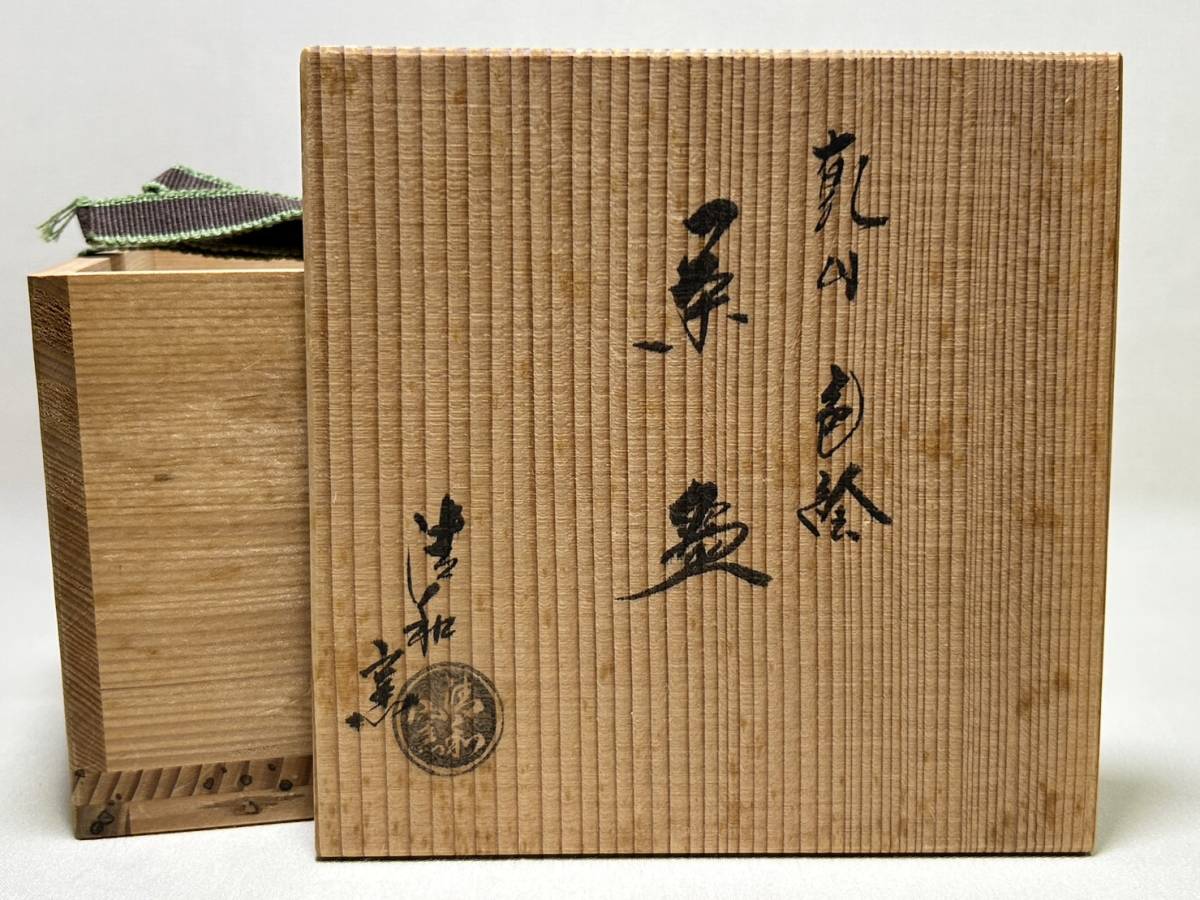 乾山 色絵
茶盌
清和
窯